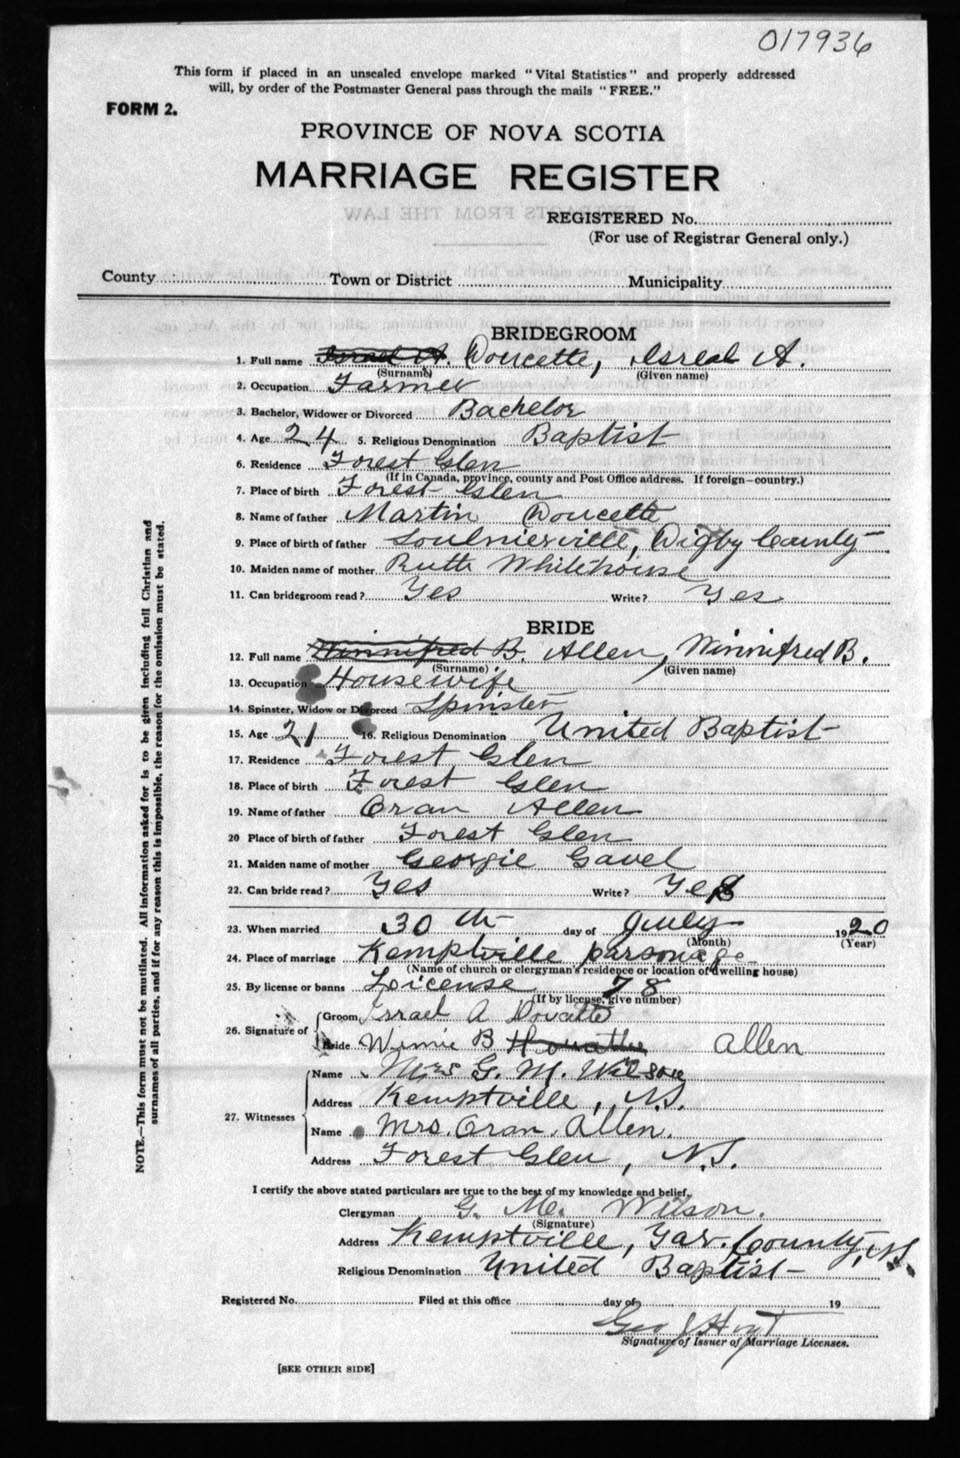 017936
This form if placed in an unsealed envelope marked "Vital Statistics" and properly addressed
will, by order of the Postmaster General pass through the mails "FREE."
FORM 2.
PROVINCE OF NOVA SCOTIA
MARRIAGE REGISTER
REGISTERED No.
(For use of Registrar General only.)
County Town or District Municipality
BRIDEGROOM
1. Full name Israel A. Doucette, Isreal A.
(Surname) (Given name)
2. Occupation Farmer
3. Bachelor, Widower or Divorced Bachelor
4. Age 24 5. Religious Denomination Baptist
6. Residence Forest Glen
(If in Canada, province, county and Post Office address. If foreign—country.)
7. Place of birth Forest Glen
8. Name of father Martin Doucette
9. Place of birth of father Soulnierville, Digby County
10. Maiden name of mother Ruth Whitehouse
11. Can bridegroom read? Yes Write? Yes
BRIDE
12. Full name Winnifred B. Allen, Winnifred B.
(Surname) (Given name)
13. Occupation Housewife
14. Spinster, Widow or Divorced Spinster
15. Age 21 16. Religious Denomination United Baptist
17. Residence Forest Glen
18. Place of birth Forest Glen
19. Name of father Oran Allen
20 Place of birth of father Forest Glen
21. Maiden name of mother Georgie Gavel
22. Can bride read? Yes Write? Yes
23. When married 30th day of July 1920
(Month) (Year)
24. Place of marriage Kemptville parsonage
(Name of church or clergyman's residence or location of dwelling house)
25. By license or banns License 78
(If by license, give number)
26. Signature of Groom Israel A Doucette
Bride Winnie B Allen
27. Witnesses
Name Mrs G. M. Wilson
Address Kemptville, N.S.
Name Mrs. Oran Allen.
Address Forest Glen, N.S.
I certify the above stated particulars are true to the best of my knowledge and belief.
Clergyman G. M. Wilson.
(Signature)
Address Kemptville, Yar. County, N.S.
Religious Denomination United Baptist
Registered No. Filed at this office day of 19
Geo J Hoyt
Signature of Issuer of Marriage Licenses.
[SEE OTHER SIDE]
NOTE.—This form must not be mutilated. All information asked for is to be given including full Christian and
surnames of all parties, and if for any reason this is impossible, the reason for the omission must be stated.